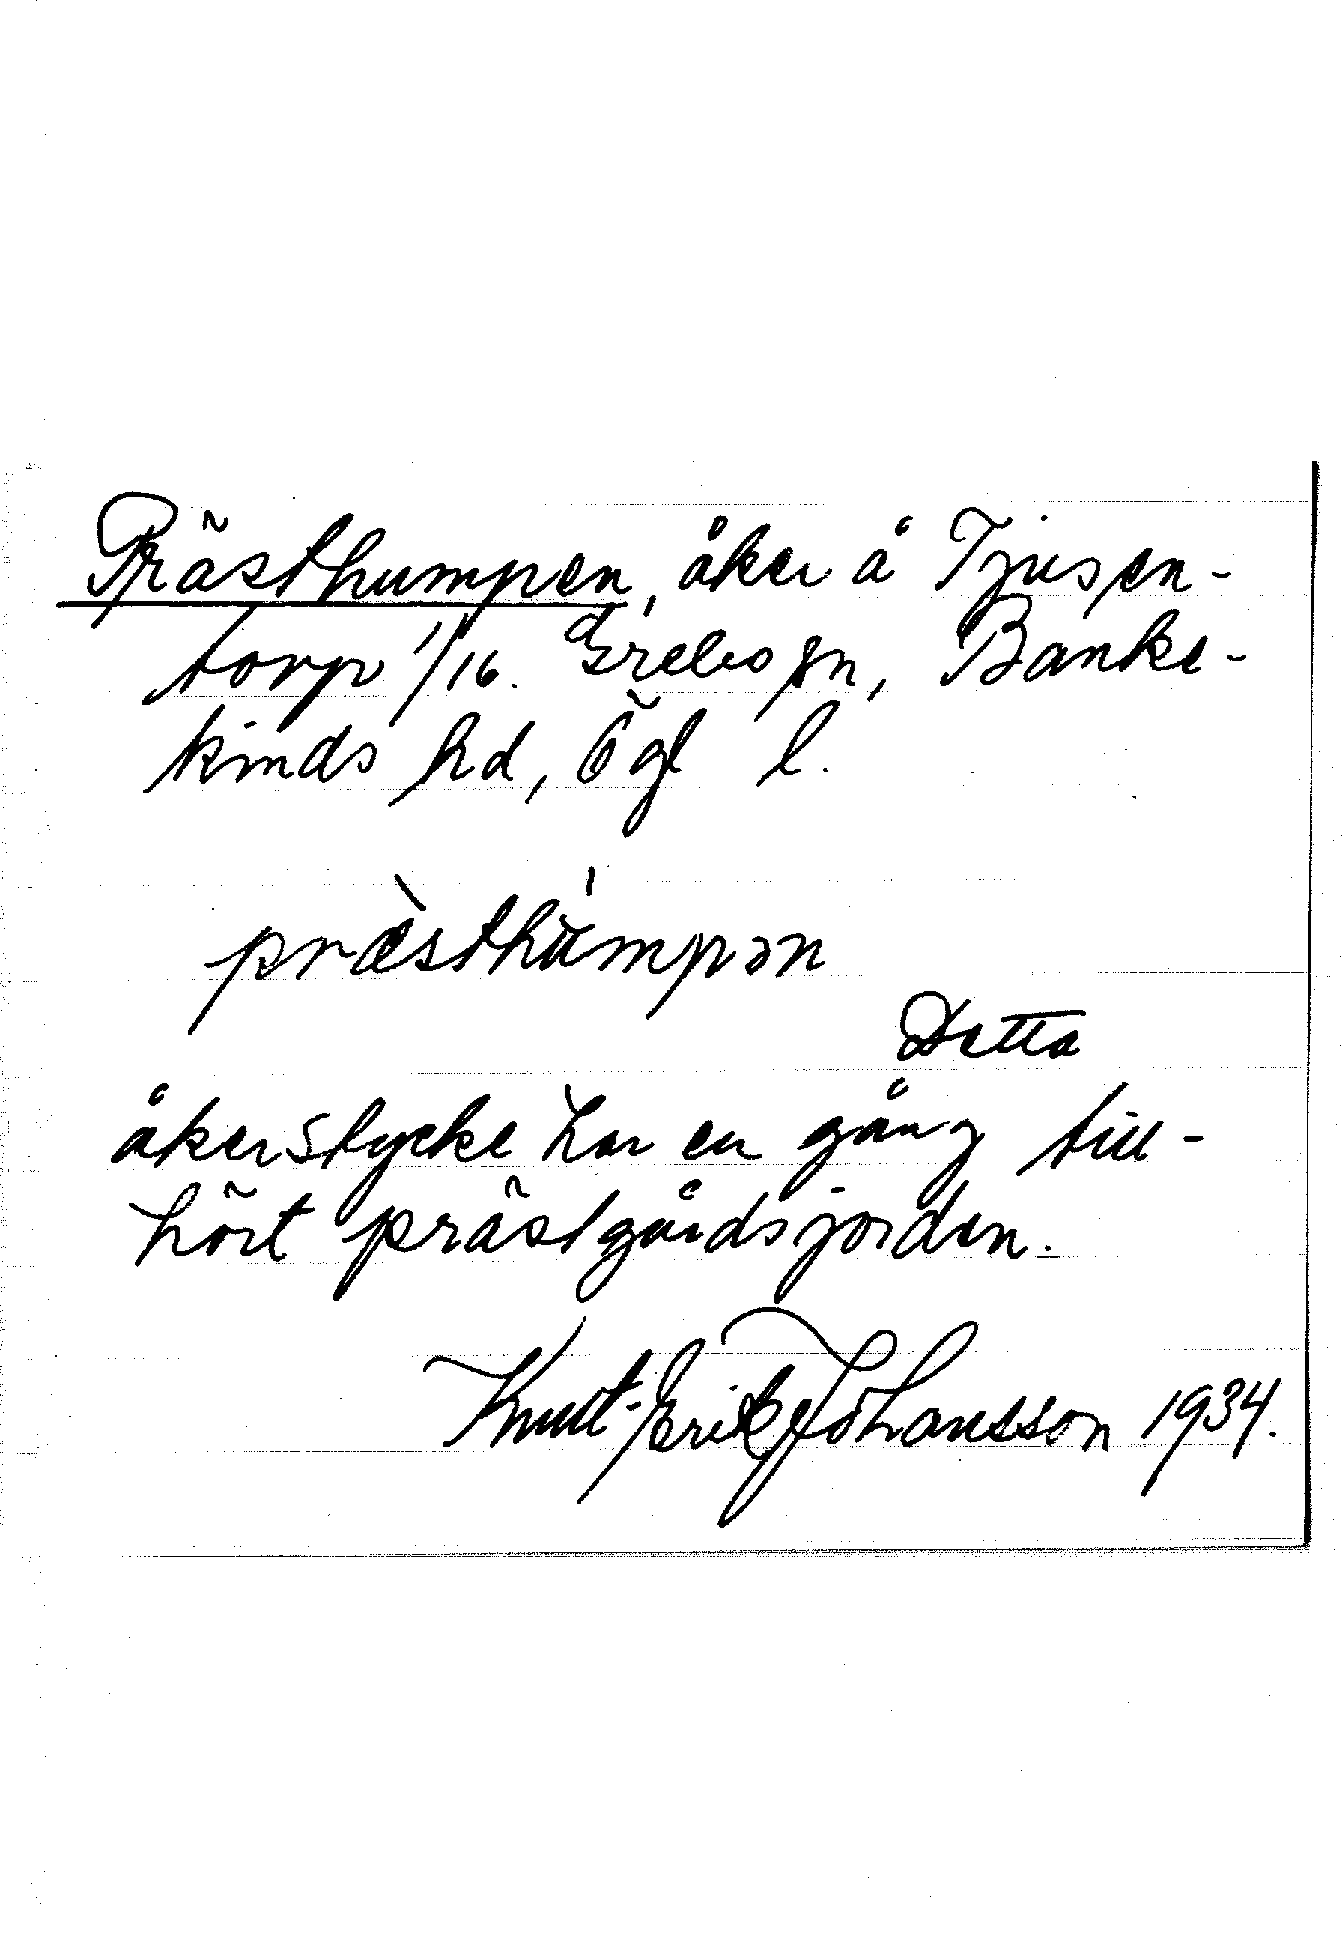 Prästhumpen, åker å Tjusen-
torp 1/16. Grebo sn, Banke-
kinds hd, Ögl l.
præ̀sthúmpən
Detta
åkerstycke har en gång till-
hört prästgårdsjorden.
Knut-Erik Johansson 1934.